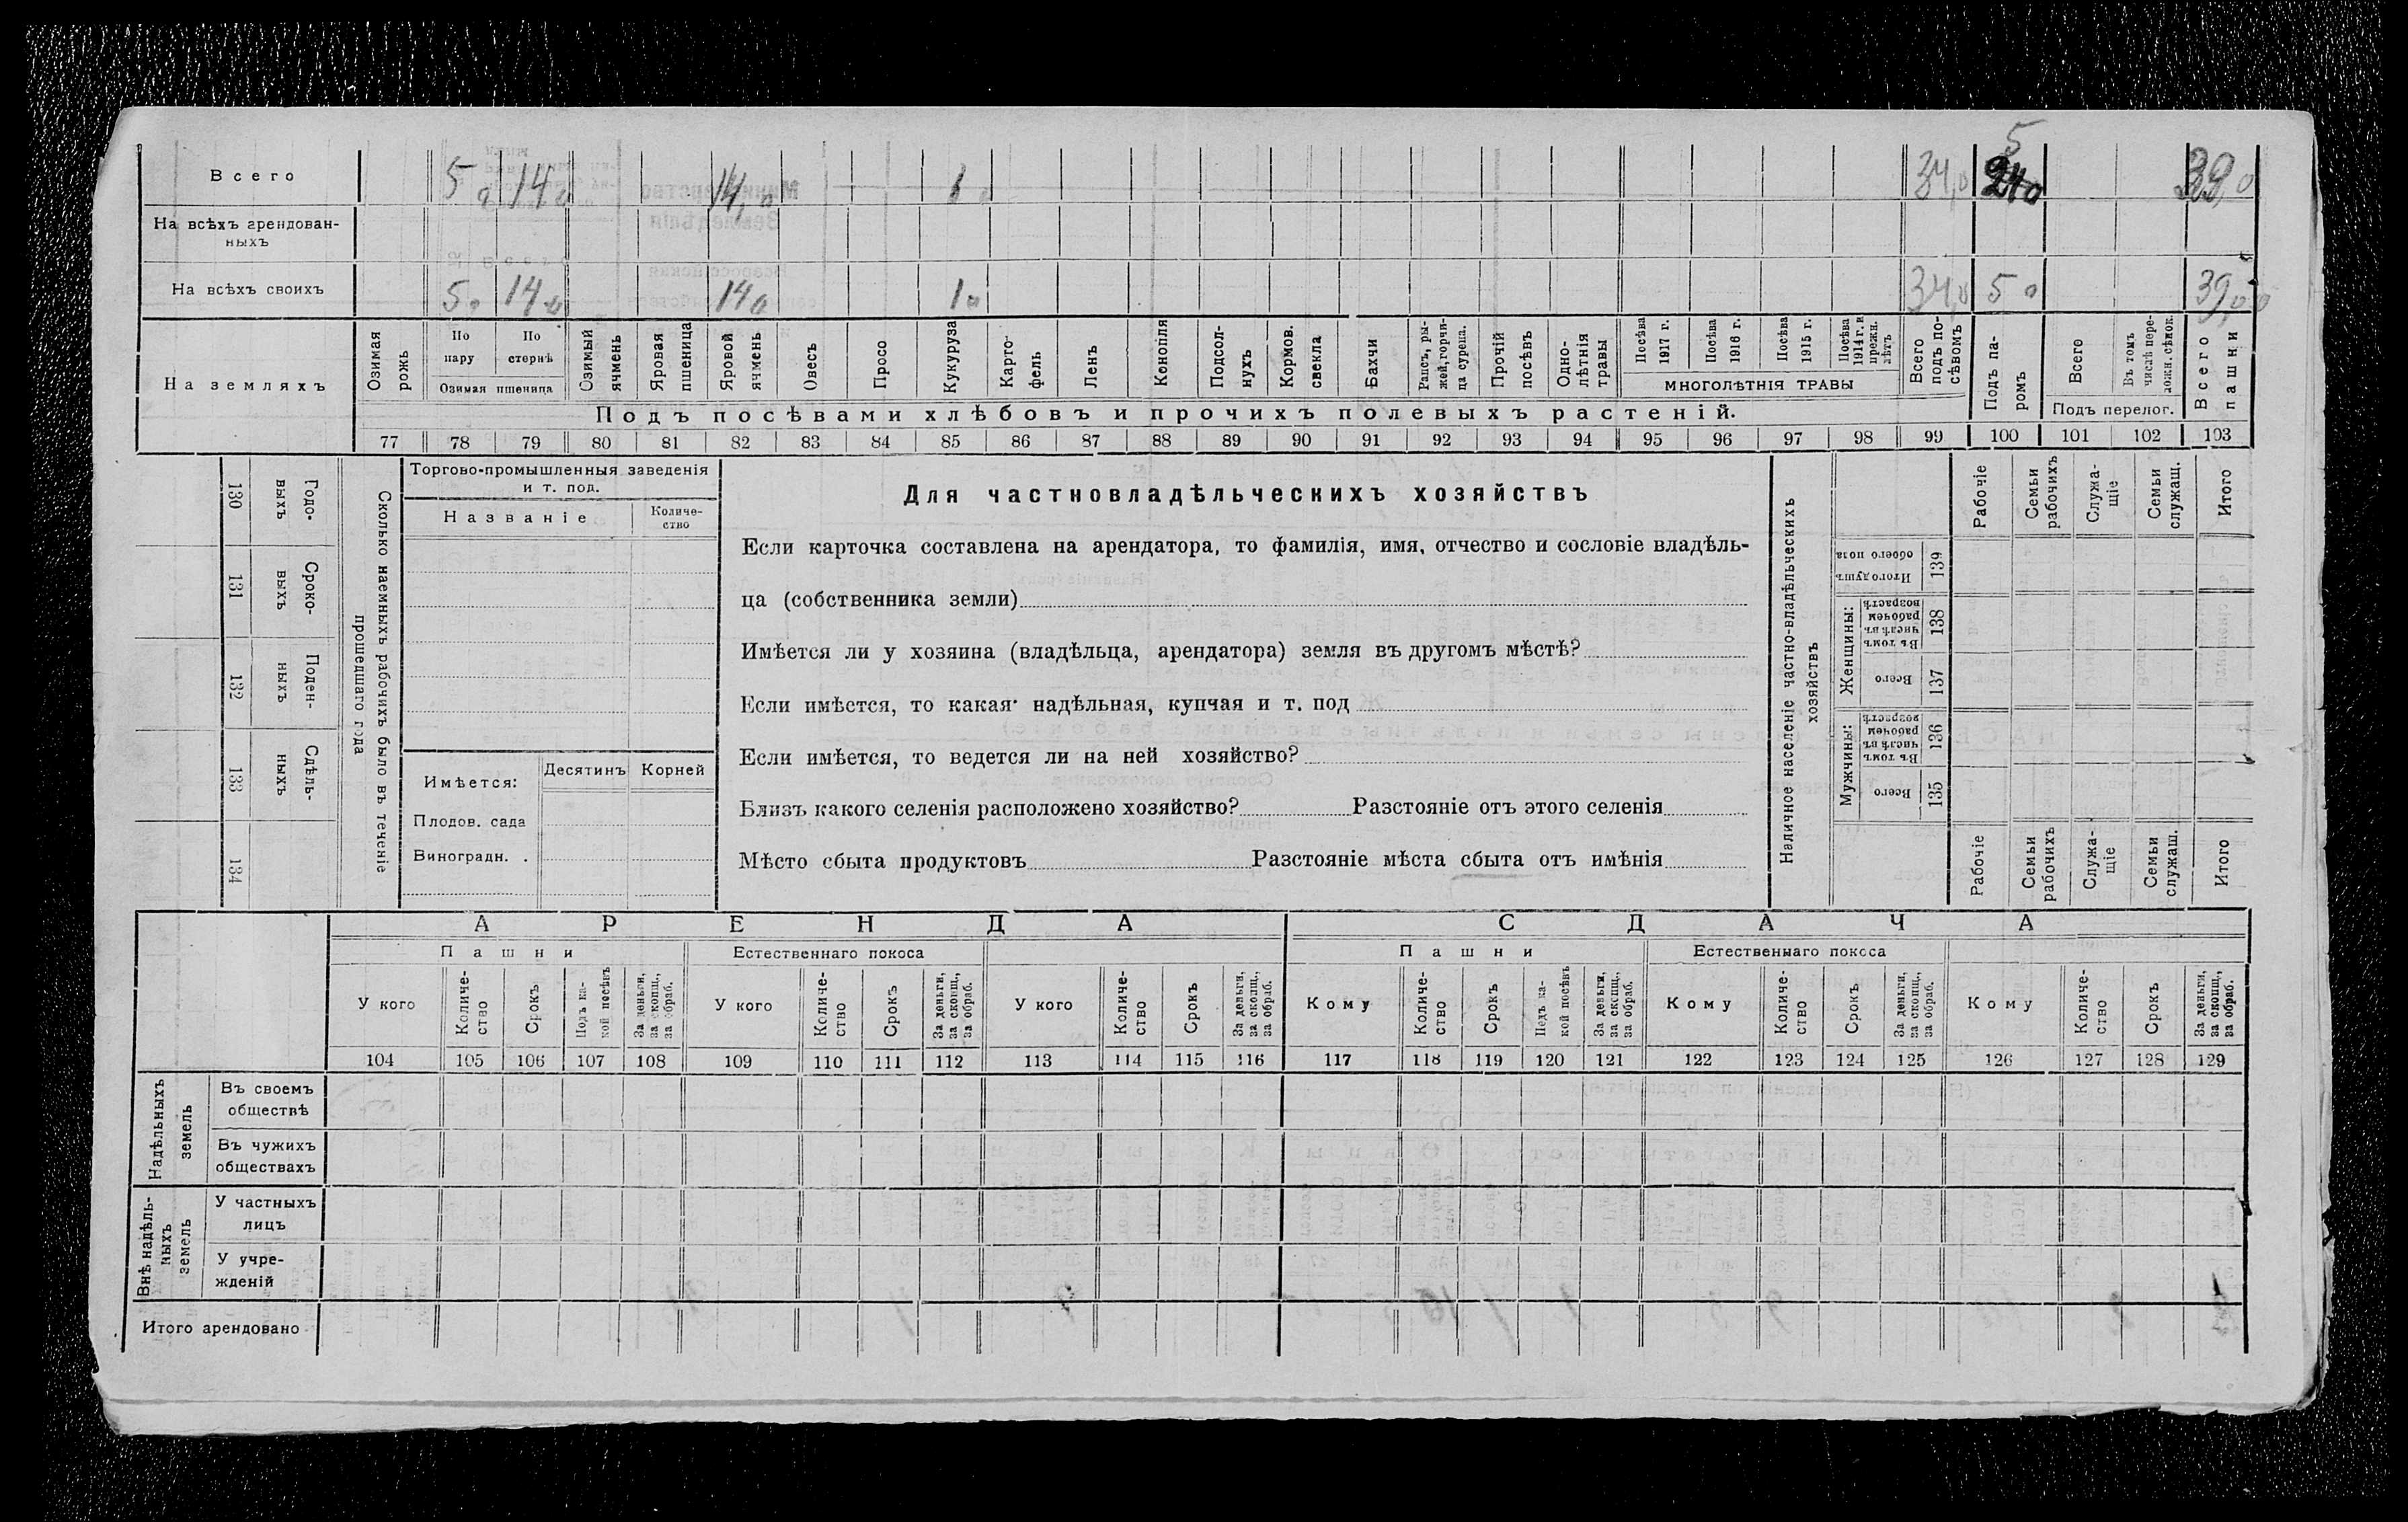 Всего 5,0 14,0 14,0 1,0 34,0 5 39,0
На всѣхъ арендован-
ныхъ
На всѣхъ своихъ 5,0 14,0 14,0 1,0 34,0 5,0 39,0
На земляхъ
Озимая рожь
По пару
По стернѣ
Озимая пшеница
Озимый ячмень
Яровая пшеница
Яровой ячмень
Овесъ
Просо
Кукуруза
Карто-
фель
Ленъ
Конопля
Подсол-
нухъ
Кормов. свекла
Бахчи
Рапсъ, ры-
жей, горчи-
ца сурепа.
Прочій посѣвъ
Одно-
лѣтнія
травы
Посѣва 1917 г.
Посѣва 1916 г.
Посѣва 1915 г.
Посѣва 1914 г. и прежн. лѣтъ
МНОГОЛѢТНІЯ ТРАВЫ
Всего подъ по-
сѣвомъ
Подъ па-
ромъ
Всего
Въ томъ числѣ пере-
ложн. сѣнок.
Подъ перелог.
Всего пашни
Подъ посѣвами хлѣбовъ и прочихъ полевыхъ растеній.
77 78 79 80 81 82 83 84 85 86 87 88 89 90 91 92 93 94 95 96 97 98 99 100 101 102 103
130 Годо-
выхъ
131 Сроко-
выхъ
132 Поден-
ныхъ
133 Сдѣль-
ныхъ
134
Сколько наемныхъ рабочихъ было въ теченіе
прошедшаго года
Торгово-промышленныя заведенія
и т. под.
Названіе
Количе-
ство
Имѣется: Десятинъ Корней
Плодов. сада
Виноградн. .
Для частновладѣльческихъ хозяйствъ
Если карточка составлена на арендатора, то фамилія, имя, отчество и сословіе владѣль-
ца (собственника земли)
Имѣется ли у хозяина (владѣльца, арендатора) земля въ другомъ мѣстѣ?
Если имѣется, то какая· надѣльная, купчая и т. под
Если имѣется, то ведется ли на ней хозяйство?
Близъ какого селенія расположено хозяйство? Разстояніе отъ этого селенія
Мѣсто сбыта продуктовъ Разстояніе мѣста сбыта отъ имѣнія
Наличное населеніе частно-владѣльческихъ
хозяйствъ
Рабочіе
Семьи рабочихъ
Служа-
щіе
Семьи служащ.
Итого
Итого душъ обоего пола 139
Женщины:
Въ томъ числѣ въ рабочем возрастѣ 138
Всего 137
Мужчины:
Въ томъ числѣ въ рабочем возрастѣ 136
Всего 135
Рабочіе
Семьи рабочихъ
Служа-
щіе
Семьи служащ.
Итого
АРЕНДА СДАЧА
Пашни Естественнаго покоса Пашни Естественнаго покоса
У кого
Количе-
ство
Срокъ
Подъ ка-
кой посѣвъ
За деньги, за скопщ., за обраб.
У кого
Количе-
ство
Срокъ
За деньги, за скопщ., за обраб.
У кого
Количе-
ство
Срокъ
За деньги, за скопщ., за обраб.
Кому
Количе-
ство
Срокъ
Подъ ка-
кой посѣвъ
За деньги, за скопщ., за обраб.
Кому
Количе-
ство
Срокъ
За деньги, за скопщ., за обраб.
Кому
Количе-
ство
Срокъ
За деньги, за скопщ., за обраб.
104 105 106 107 108 109 110 111 112 113 114 115 116 117 118 119 120 121 122 123 124 125 126 127 128 129
Надѣльныхъ
земель
Въ своемъ
обществѣ
Въ чужихъ
обществахъ
Внѣ надѣль-
ныхъ
земель
У частныхъ
лицъ
У учре-
жденій
Итого арендовано